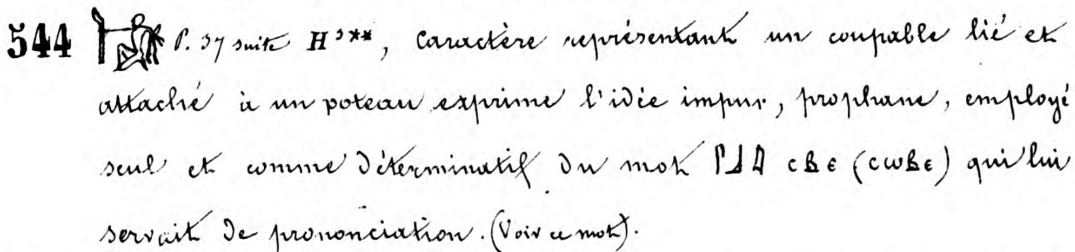 544 P. 37 suite H³**, caractère représentant un coupable lié et
attaché à un poteau exprime l'idée impur, prophane, employé
seul et comme déterminatif du mot ⲥⲃⲉ (ⲥⲱⲃⲉ) qui lui
servait de prononciation. (Voir ce mot).